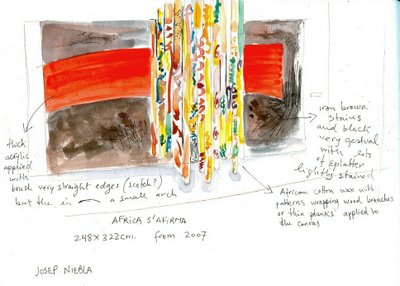 thick
acrylic
applied
with
brush very straight edges (scotch?)
but the is a small arch
iron brown
stains
and black
very gestual
with lots
of splatter
lightly stained
African cotton wax with
patterns wrapping wood branches
or thin planks applied to
the canvas
AFRICA S'AFIRMA
248x322cm. from 2007
JOSEP NIEBLA